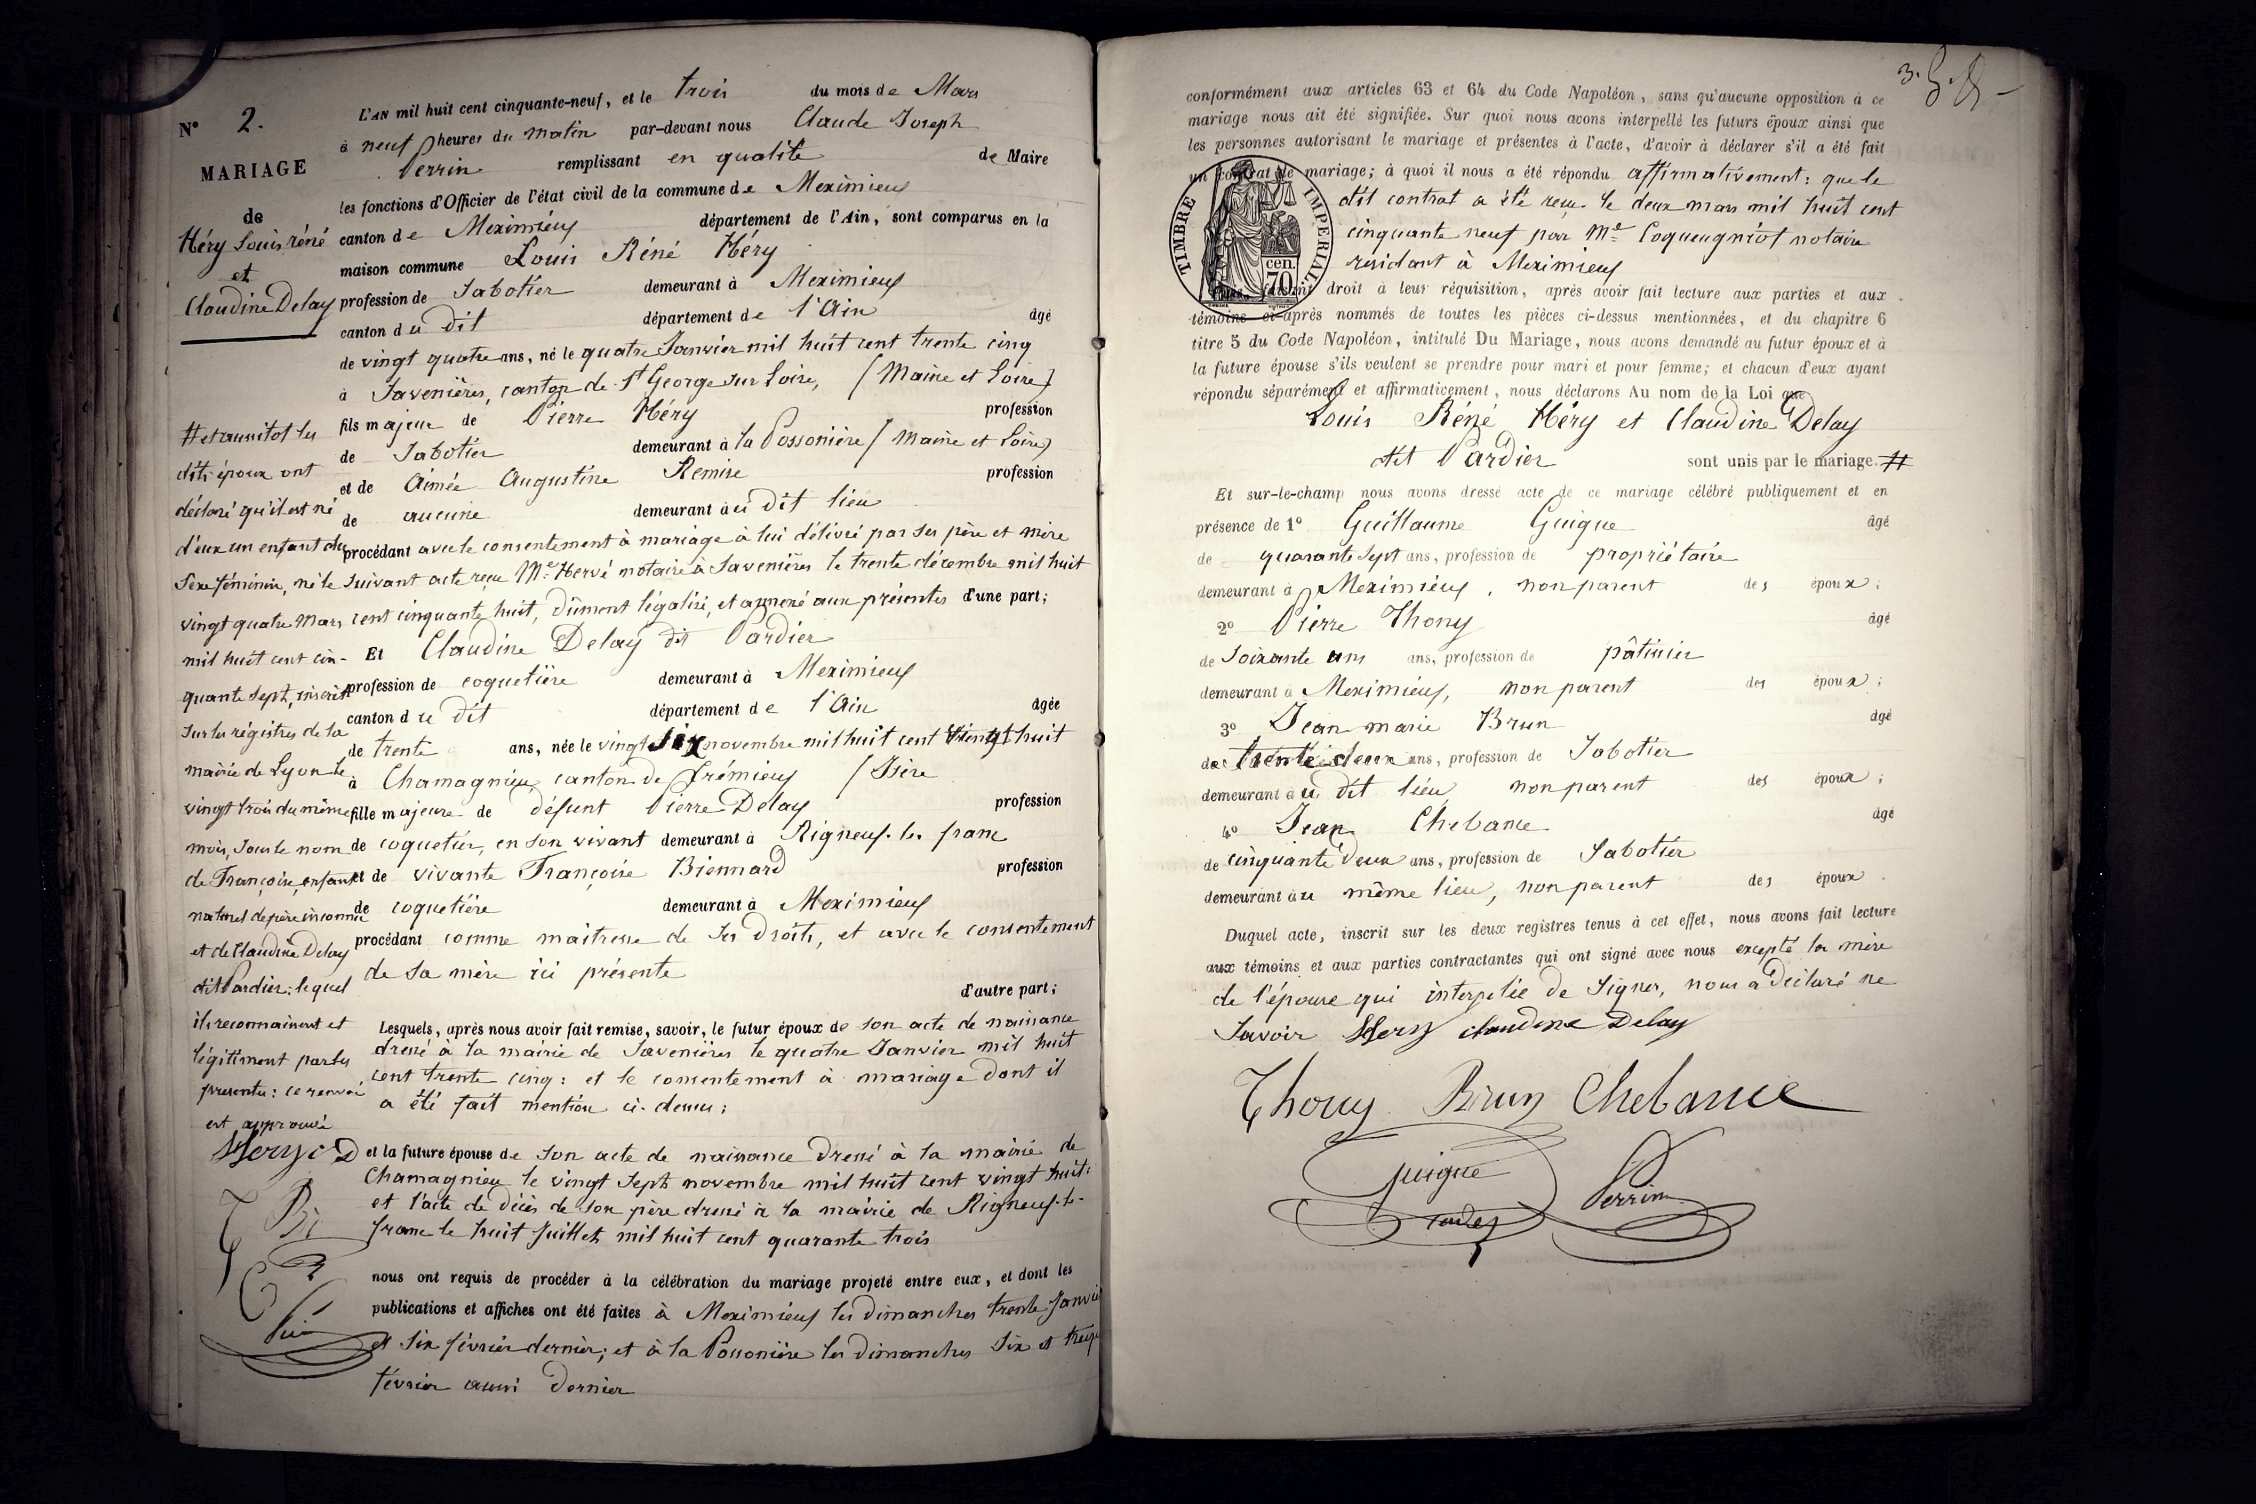 N° 2.
MARIAGE
de
Héry Louis réné
et
Claudine Delay
L'AN mil huit cent cinquante-neuf, et le trois du mois de Mars
à neuf heures du matin par-devant nous Claude Joseph
Perrin remplissant en qualité de Maire
les fonctions d'Officier de l'état civil de la commune de Meximieux
canton de Meximieux département de l'Ain, sont comparus en la
maison commune Louis Réné Héry
profession de Sabotier demeurant à Meximieux
canton du dit département de l'Ain âgé
de vingt quatre ans, né le quatre Janvier mil huit cent trente cinq
à Savenières, canton de St George sur Loire, (Maine et Loire)
fils majeur de Pierre Héry profession
de Sabotier demeurant à la Possonière (Maine et Loire)
et de Aimée Augustine Remise profession
de aucune demeurant au dit lieu
procédant avec le consentement à mariage à lui délivré par ses père et mère
suivant acte reçu Me Hervé notaire à Savenières le trente décembre mil huit
cent cinquante huit, dûment légalisé, et annexé aux présentes d'une part;
Et Claudine Delay dit Pardier
profession de coquetière demeurant à Meximieux
canton du dit département de l'Ain âgée
de trente ans, née le vingt six novembre mil huit cent vingt huit
à Chamagnieu canton de Crémieux (Isère
fille majeure de défunt Pierre Delay profession
de coquetier, en son vivant demeurant à Rigneux-le-franc
et de vivante Françoise Biennard profession
de coquetière demeurant à Meximieux
procédant comme maitresse de ses droits, et avec le consentement
de sa mère ici présente
d'autre part;
Lesquels, après nous avoir fait remise, savoir, le futur époux de son acte de naissance
dressé à la mairie de Savenières le quatre Janvier mil huit
cent trente cinq: et le consentement à mariage dont il
a été fait mention ci-dessus;
et la future épouse de son acte de naissance dressé à la mairie de
Chamagnieu le vingt sept novembre mil huit cent vingt huit:
et l'acte de décès de son père dressé à la mairie de Rigneux-le-
franc le huit Juillet mil huit cent quarante trois
nous ont requis de procéder à la célébration du mariage projeté entre eux, et dont les
publications et affiches ont été faites à Meximieux les dimanches trente Janvier
et six février dernier; et à la Possonière les dimanches six et treize
février aussi dernier
# et aussitot les
dits époux ont
déclaré qu'il est né
d'eux un enfant du
sexe féminin, né le
vingt quatre mars
mil huit cent cin-
quante sept, inscrit
sur les régistres de la
mairie de Lyon le
vingt trois du même
mois, sous le nom
de Françoise, enfant
naturel de père inconnu
et de Claudine Delay
dit Pardier: lequel
ils reconnaissent et
légitiment par les
présentes: ce renvoi
est approuvé
Hery C D
T Bi
conformément aux articles 63 et 64 du Code Napoléon, sans qu'aucune opposition à ce
mariage nous ait été signifiée. Sur quoi nous avons interpellé les futurs époux ainsi que
les personnes autorisant le mariage et présentes à l'acte, d'avoir à déclarer s'il a été fait
un contrat de mariage; à quoi il nous a été répondu affirmativement: que le
dit contrat a été reçu le deux mars mil huit cent
cinquante neuf par Me Coqueugniot notaire
résidant à Meximieux
TIMBRE IMPERIAL
cen.
70
droit à leur réquisition, après avoir fait lecture aux parties et aux
témoins ci-après nommés de toutes les pièces ci-dessus mentionnées, et du chapitre 6
titre 5 du Code Napoléon, intitulé Du Mariage, nous avons demandé au futur époux et à
la future épouse s'ils veulent se prendre pour mari et pour femme; et chacun d'eux ayant
répondu séparément et affirmativement, nous déclarons Au nom de la Loi que
Louis Réné Héry et Claudine Delay
dit Pardier sont unis par le mariage. #
Et sur-le-champ nous avons dressé acte de ce mariage célébré publiquement et en
présence de 1° Guillaume Guigue âgé
de quarante sept ans, profession de propriétaire
demeurant à Meximieux, non parent des époux;
2° Pierre Thony âgé
de soixante ans ans, profession de pâtissier
demeurant à Meximieux, non parent des époux;
3° Jean marie Brun âgé
de trente deux ans, profession de Sabotier
demeurant au dit lieu, non parent des époux;
4° Jean Chebance âgé
de cinquante deux ans, profession de Sabotier
demeurant au même lieu, non parent des époux.
Duquel acte, inscrit sur les deux registres tenus à cet effet, nous avons fait lecture
aux témoins et aux parties contractantes qui ont signé avec nous excepté la mère
de l'épouse qui interpelée de signer, nous a déclaré ne
savoir Hery claudine Delay
Thony Brun Chebance
Guigue
Perrin